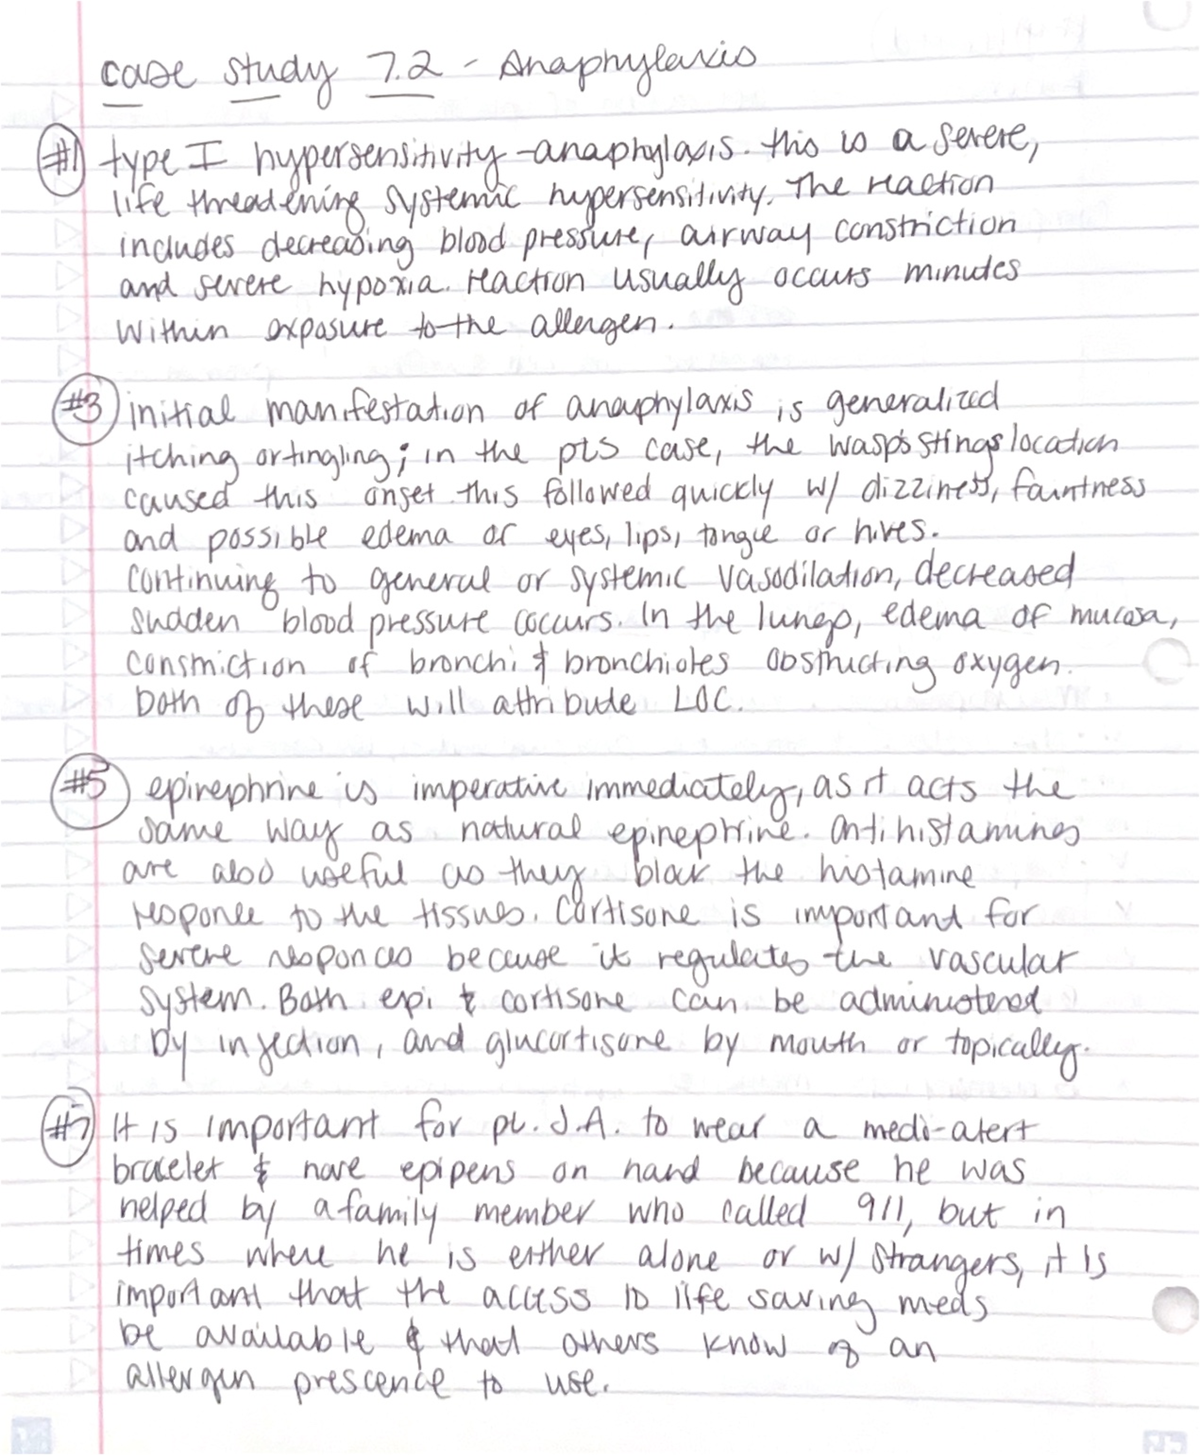 case study 7.2 - Anaphylaxis
#1 type I hypersensitivity-anaphylaxis. this is a severe,
life threatening systemic hypersensitivity. The reaction
includes decreasing blood pressure, airway constriction
and severe hypoxia. reaction usually occurs minutes
within exposure to the allergen.
#3 initial manifestation of anaphylaxis is generalized
itching or tingling; in the pts case, the wasps stings location
caused this onset. this followed quickly w/ dizziness, faintness
and possible edema of eyes, lips, tongue or hives.
continuing to general or systemic vasodilation, decreased
sudden blood pressure occurs. In the lungs, edema of mucosa,
constriction of bronchi & bronchioles obstructing oxygen.
both of these will attribute LOC.
#5 epinephrine is imperative immediately, as it acts the
same way as natural epinephrine. antihistamines
are also useful as they block the histamine
responce to the tissues. Cortisone is important for
severe responces because it regulates the vascular
system. Both epi & cortisone can be administered
by injection, and glucortisone by mouth or topically.
#7 It is important for pt. J.A. to wear a medi-alert
bracelet & have epipens on hand because he was
helped by a family member who called 911, but in
times where he is either alone or w/ strangers, it is
important that the access to life saving meds
be available & that others know of an
allergen prescence to use.